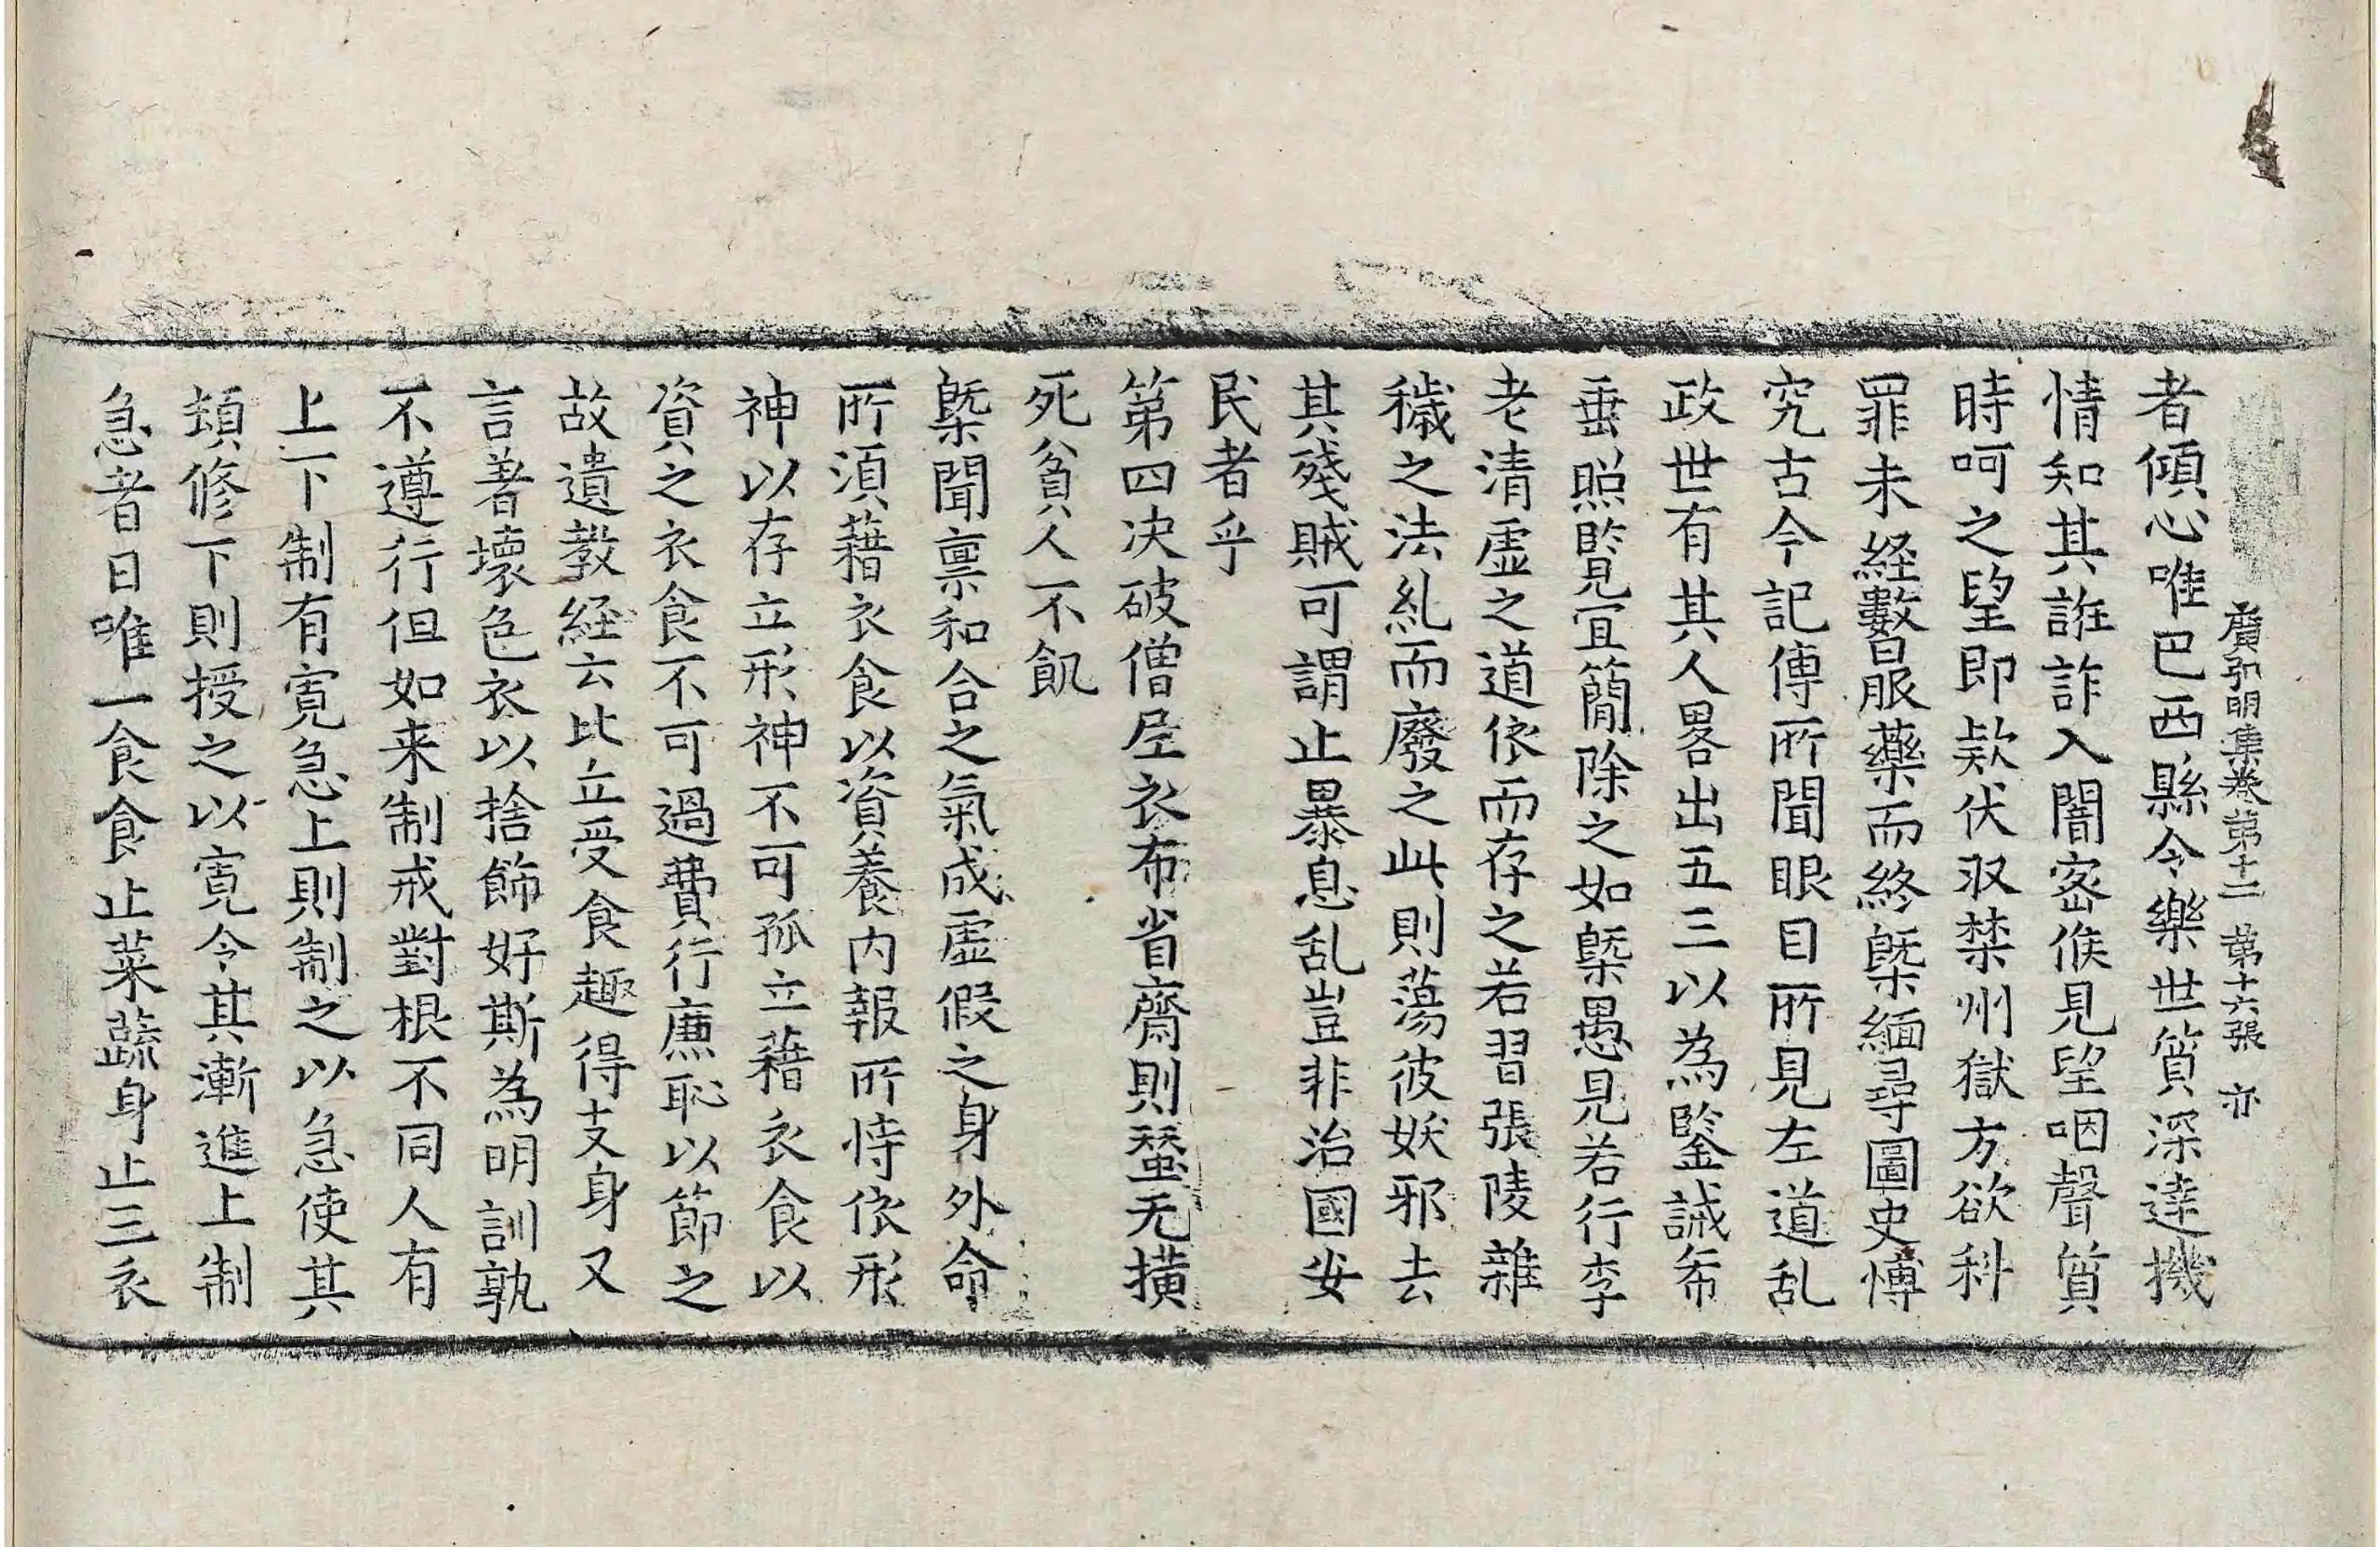 廣弘明集卷第十二 第十六張 亦
者傾心唯巴西縣令樂世質深達機
情知其誑詐入闇密候見望咽聲質
時呵之望即欵伏収禁州獄方欲科
罪未經數日服藥而終槩緬尋圖史博
究古今記傳所聞眼目所見左道乱
政世有其人畧出五三以為鑒誡希
垂照覽冝簡除之如槩愚見若行李
老清虛之道依而存之若習張陵雜
穢之法糺而廢之此則蕩彼妖邪去
其殘賊可謂止暴息乱豈非治國安
民者乎
第四决破僧尼衣布省齋則蝅无擴
死貧人不飢
槩聞禀和合之氣成虛假之身外命
所湏藉衣食以資養内報所恃依形
神以存立形神不可孤立藉衣食以
資之衣食不可過費行廉恥以節之
故遺教経云比立受食趣得支身又
言著壞色衣以捨飾好斯為明訓孰
不遵行但如来制戒對根不同人有
上下制有寬急上則制之以急使其
頓修下則授之以寬令其漸進上制
急者日唯一食食止菜蔬身止三衣